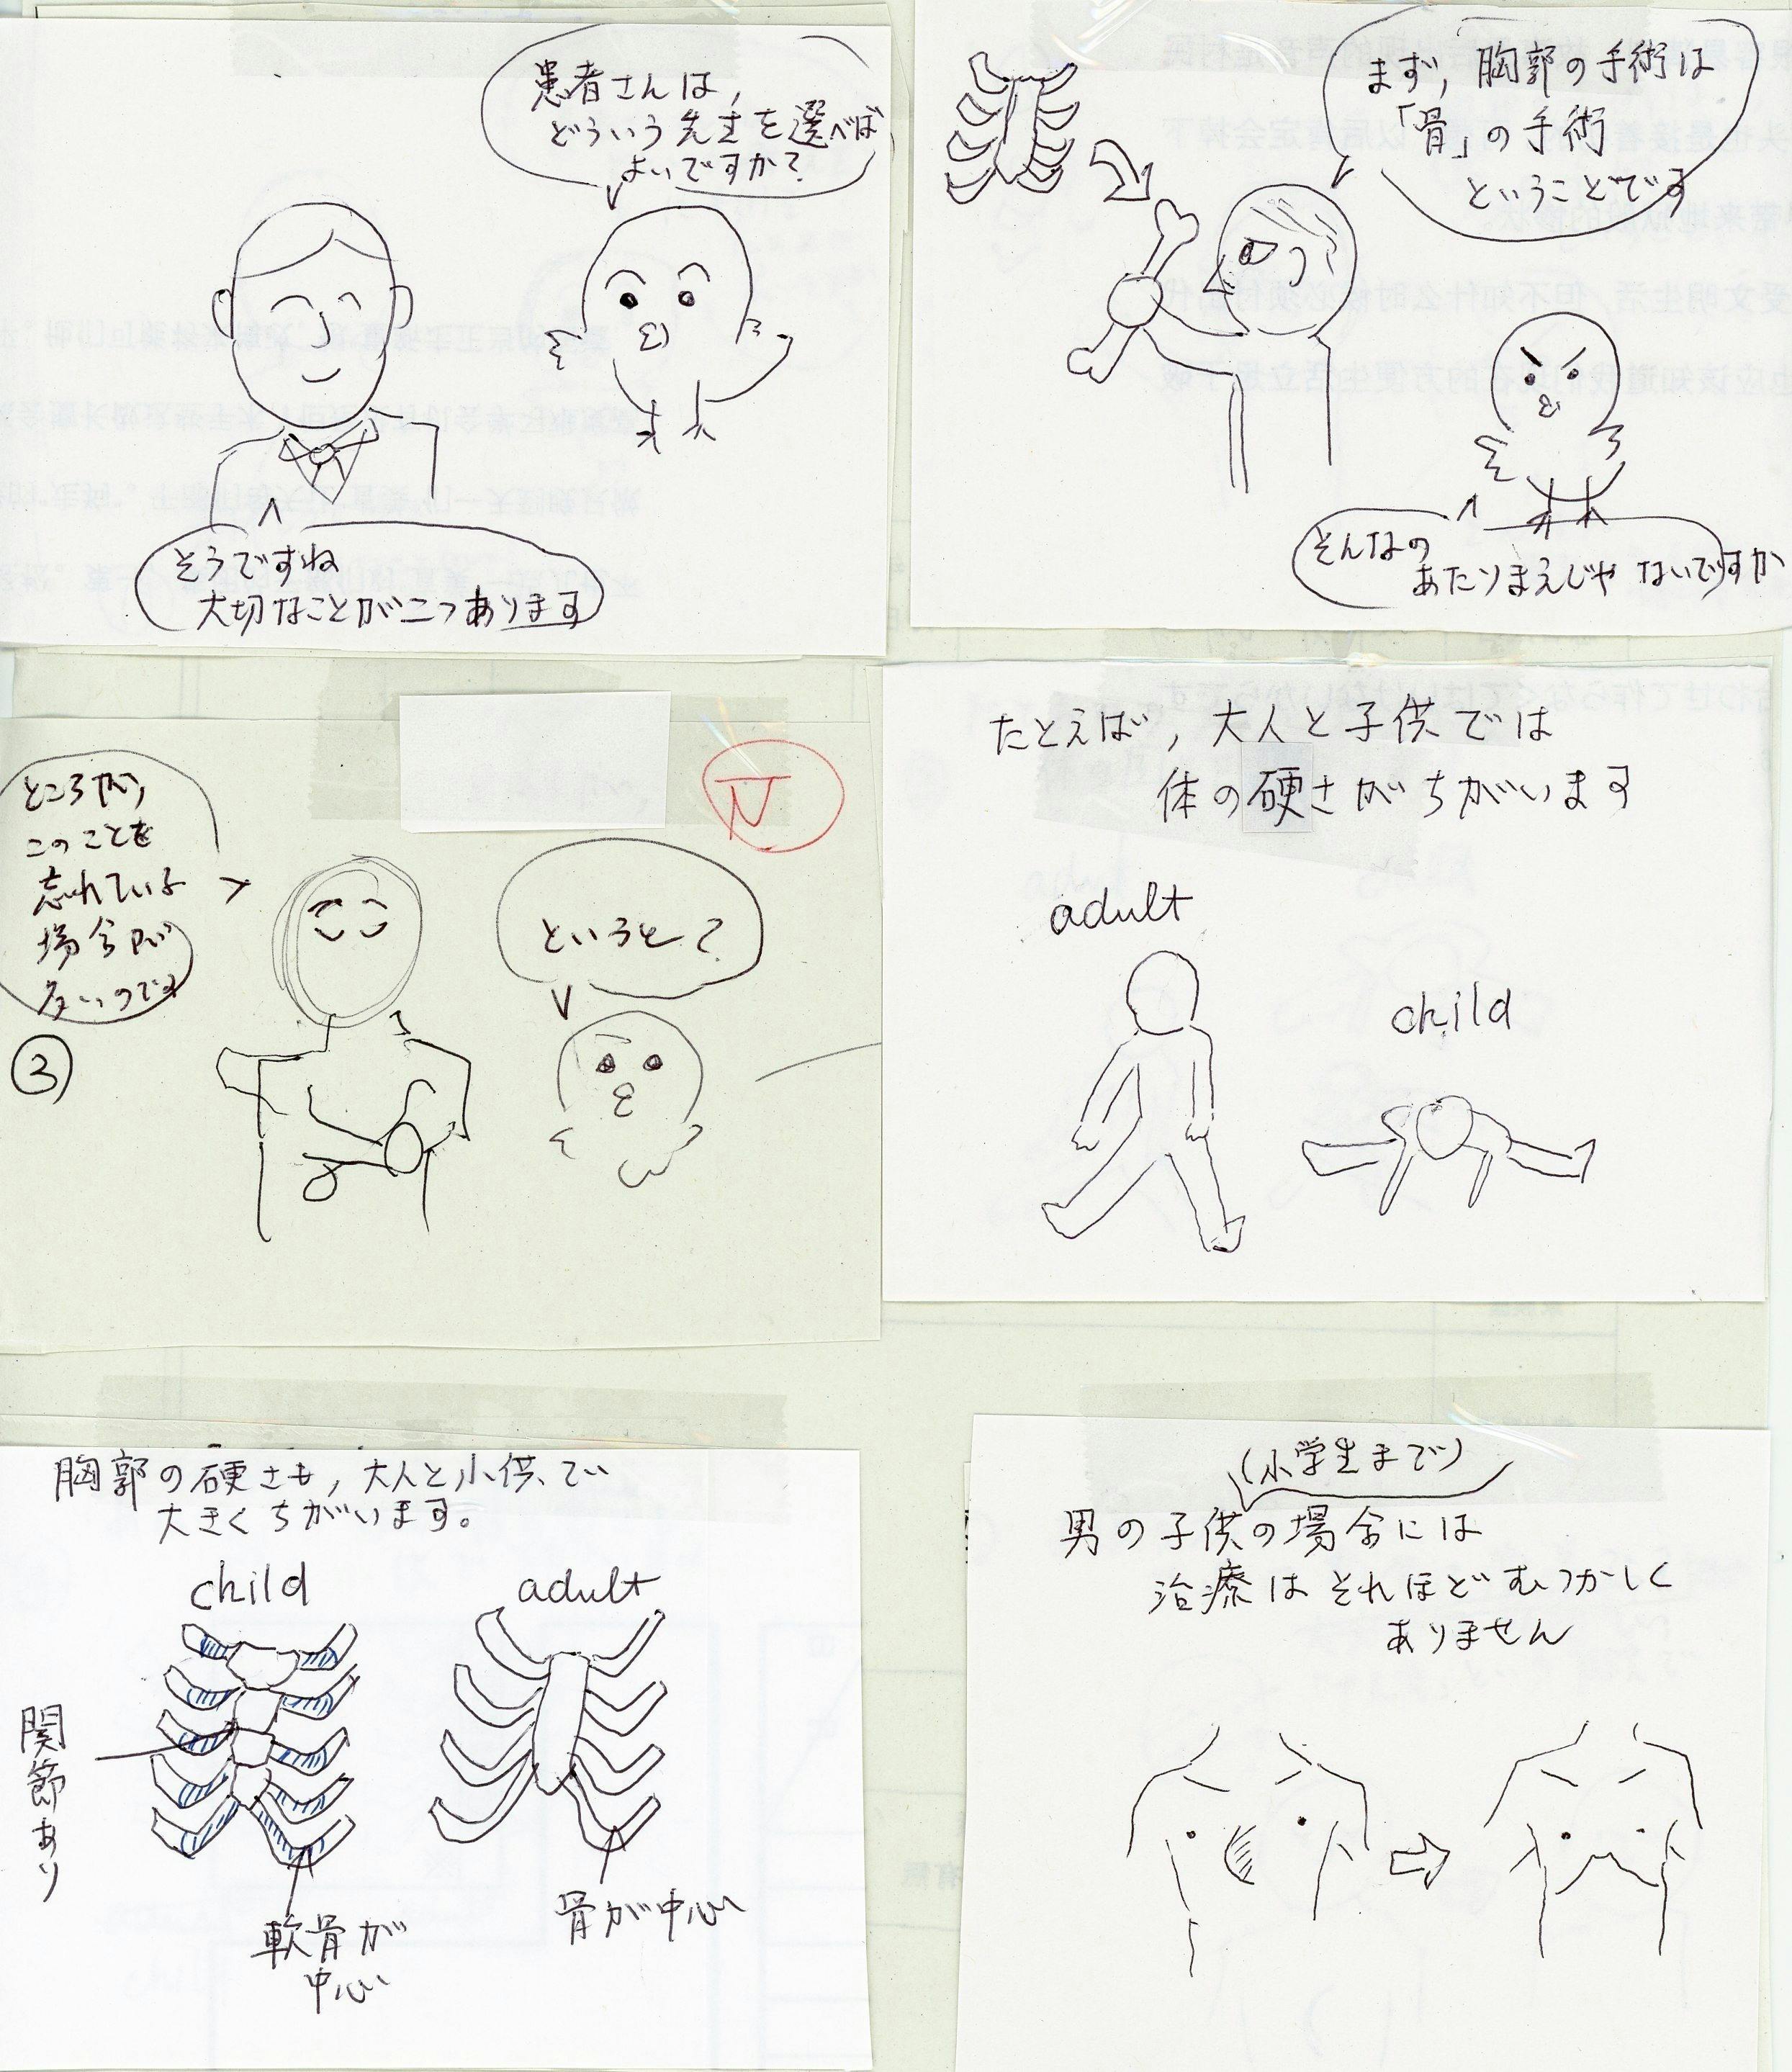 患者さんは,
どういう先生を選べば
よいですか?
そうですね
大切なことが二つあります
まず, 胸郭の手術は
「骨」の手術
ということです
そんなの
あたりまえじゃないですか
ところが,
このことを
忘れている
場合が
多いのです
というと?
③
たとえば, 大人と子供では
体の硬さがちがいます
adult
child
胸郭の硬さも, 大人と小供で
大きくちがいます。
child
adult
関節あり
軟骨が
中心
骨が中心
(小学生まで)
男の子供の場合には
治療はそれほどむつかしく
ありません